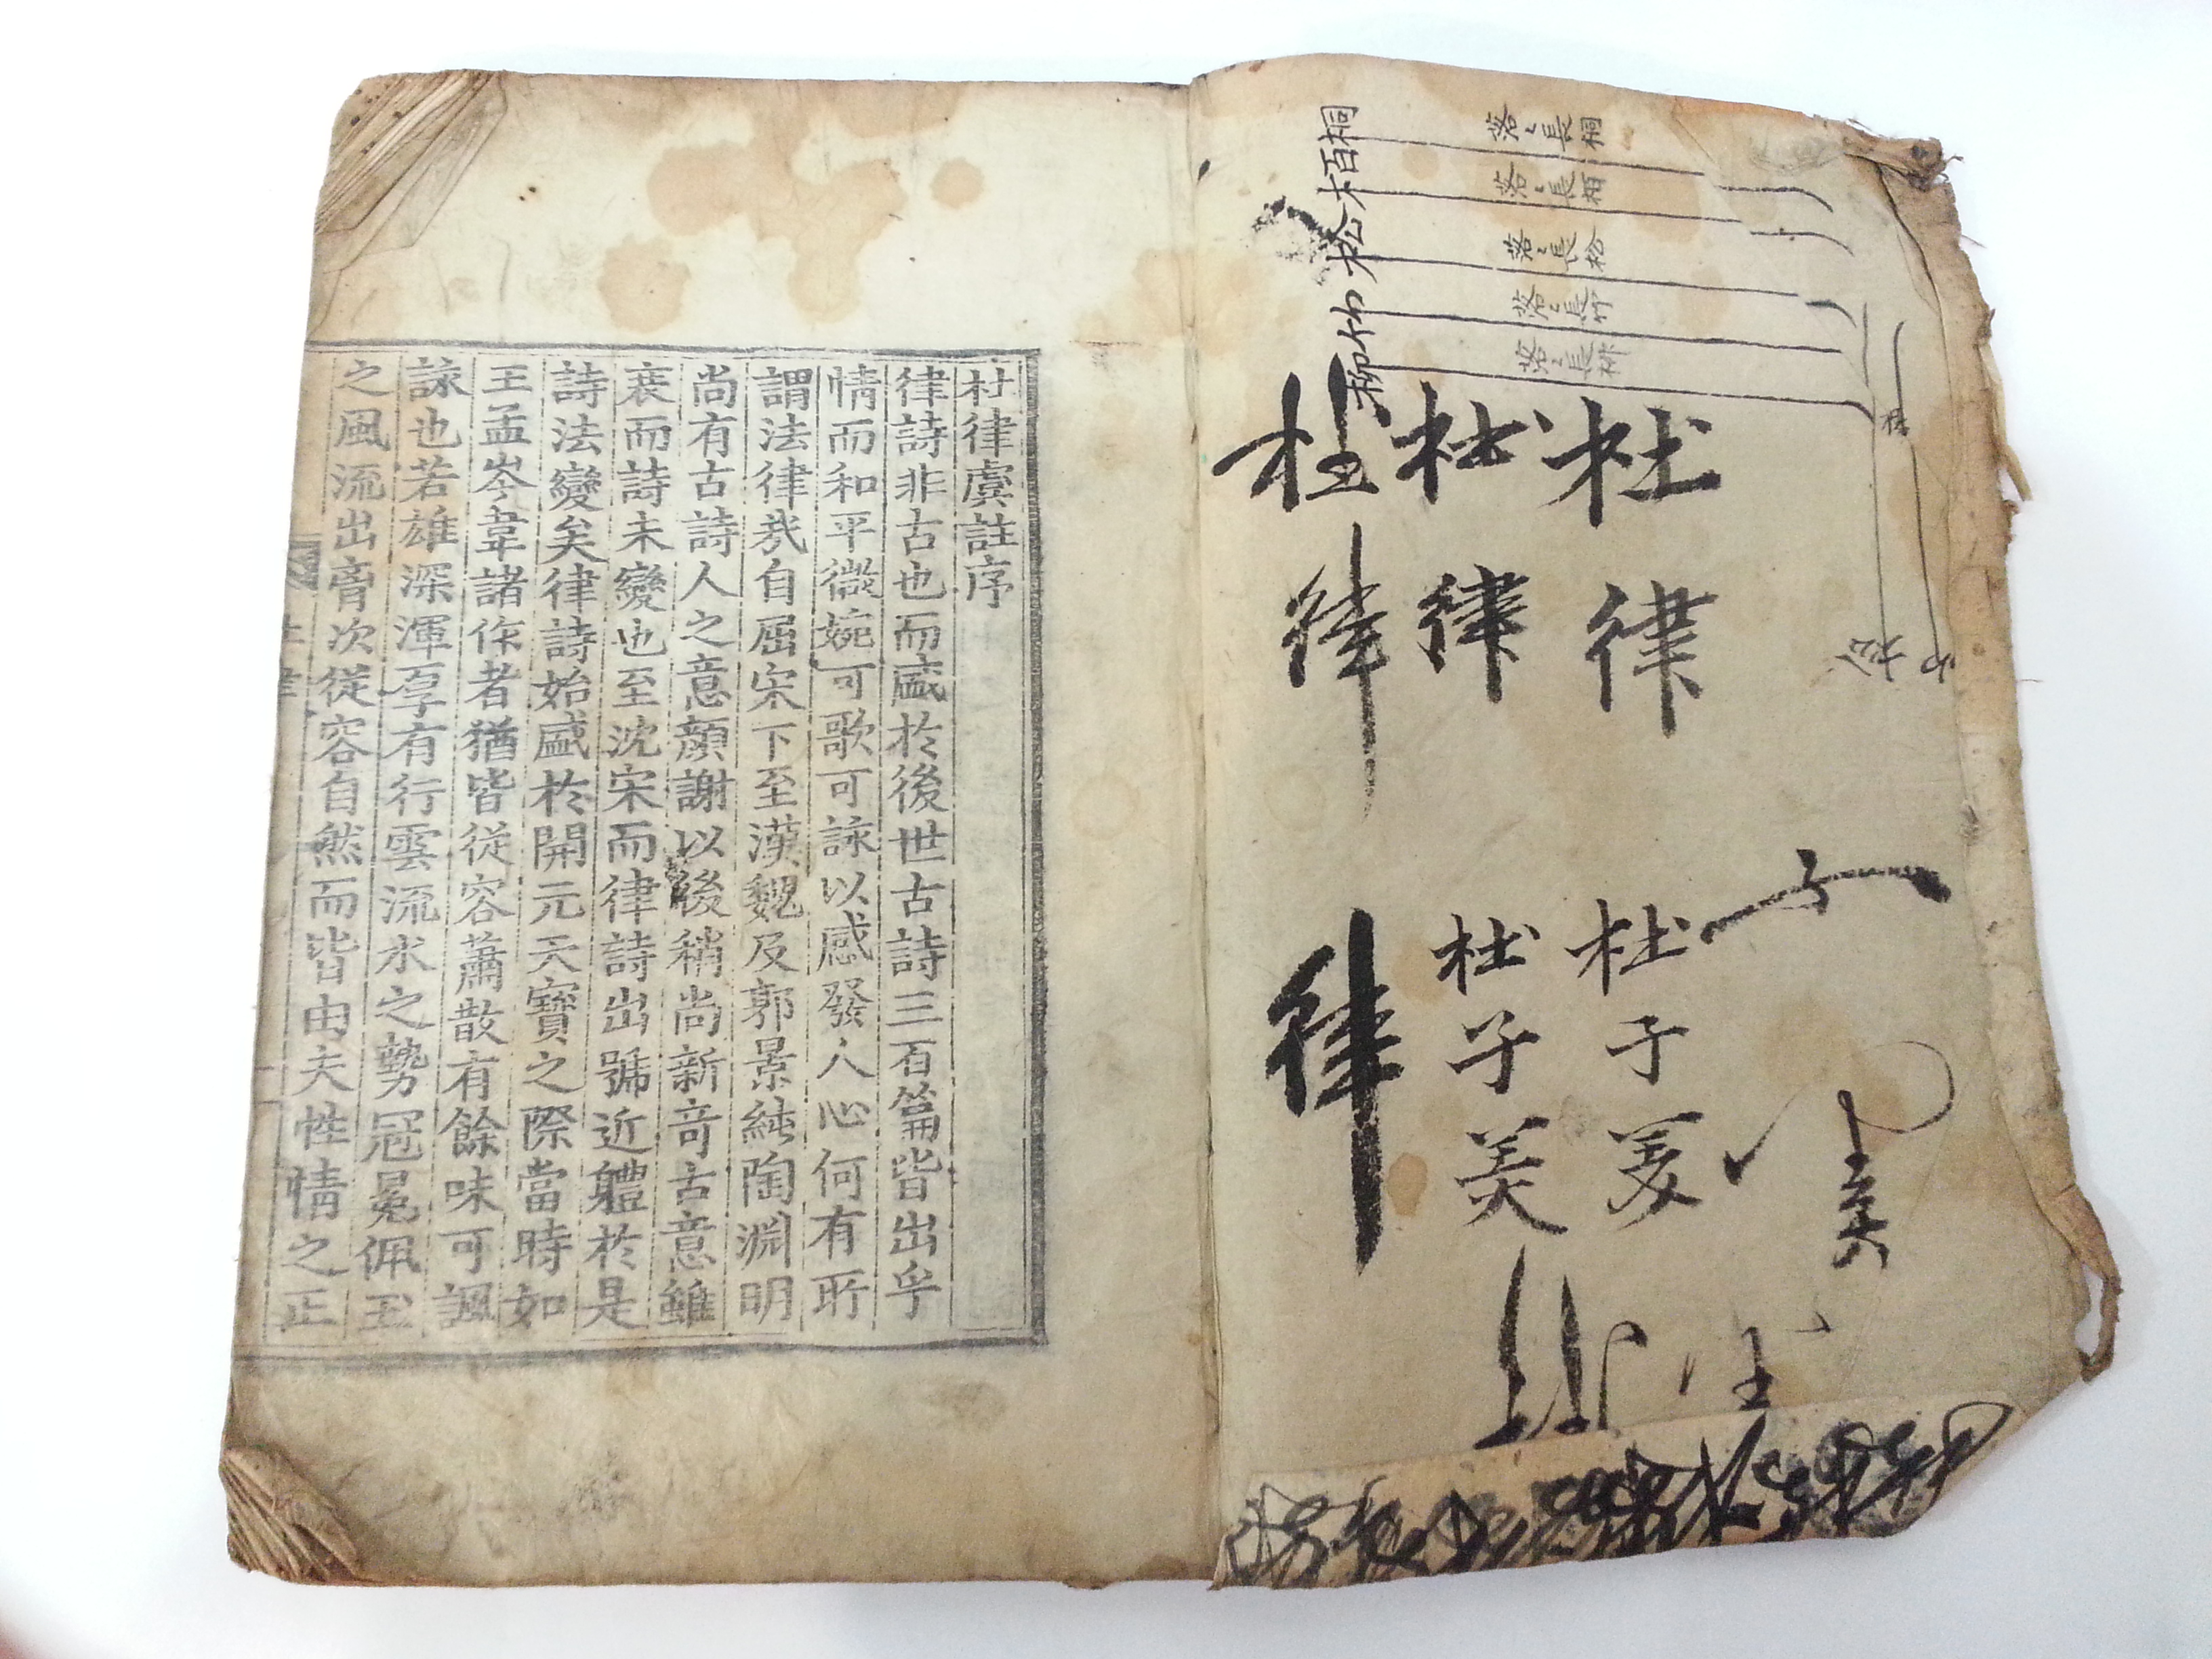 桐
栢
松
竹
柳
落々長桐
落々長栢
落々長松
落々長竹
落々長柳
杜律
杜律
杜律
律
杜子美
杜子美
杜律虞註序
律詩非古也而盛於後世古詩三百篇皆出乎
情而和平微婉可歌可詠以感發人心何有所
謂法律㦲自屈宋下至漢魏及郭景純陶淵明
尚有古詩人之意顔謝以後稍尚新竒古意雖
衰而詩未變也至沈宋而律詩出號近軆於是
詩法變矣律詩始盛於開元天寶之際當時如
王孟岑韋諸作者猶皆從容蕭散有餘味可諷
詠也若雄深渾厚有行雲流水之勢冠冕佩玉
之風流出胷次從容自然而皆由夫性情之正